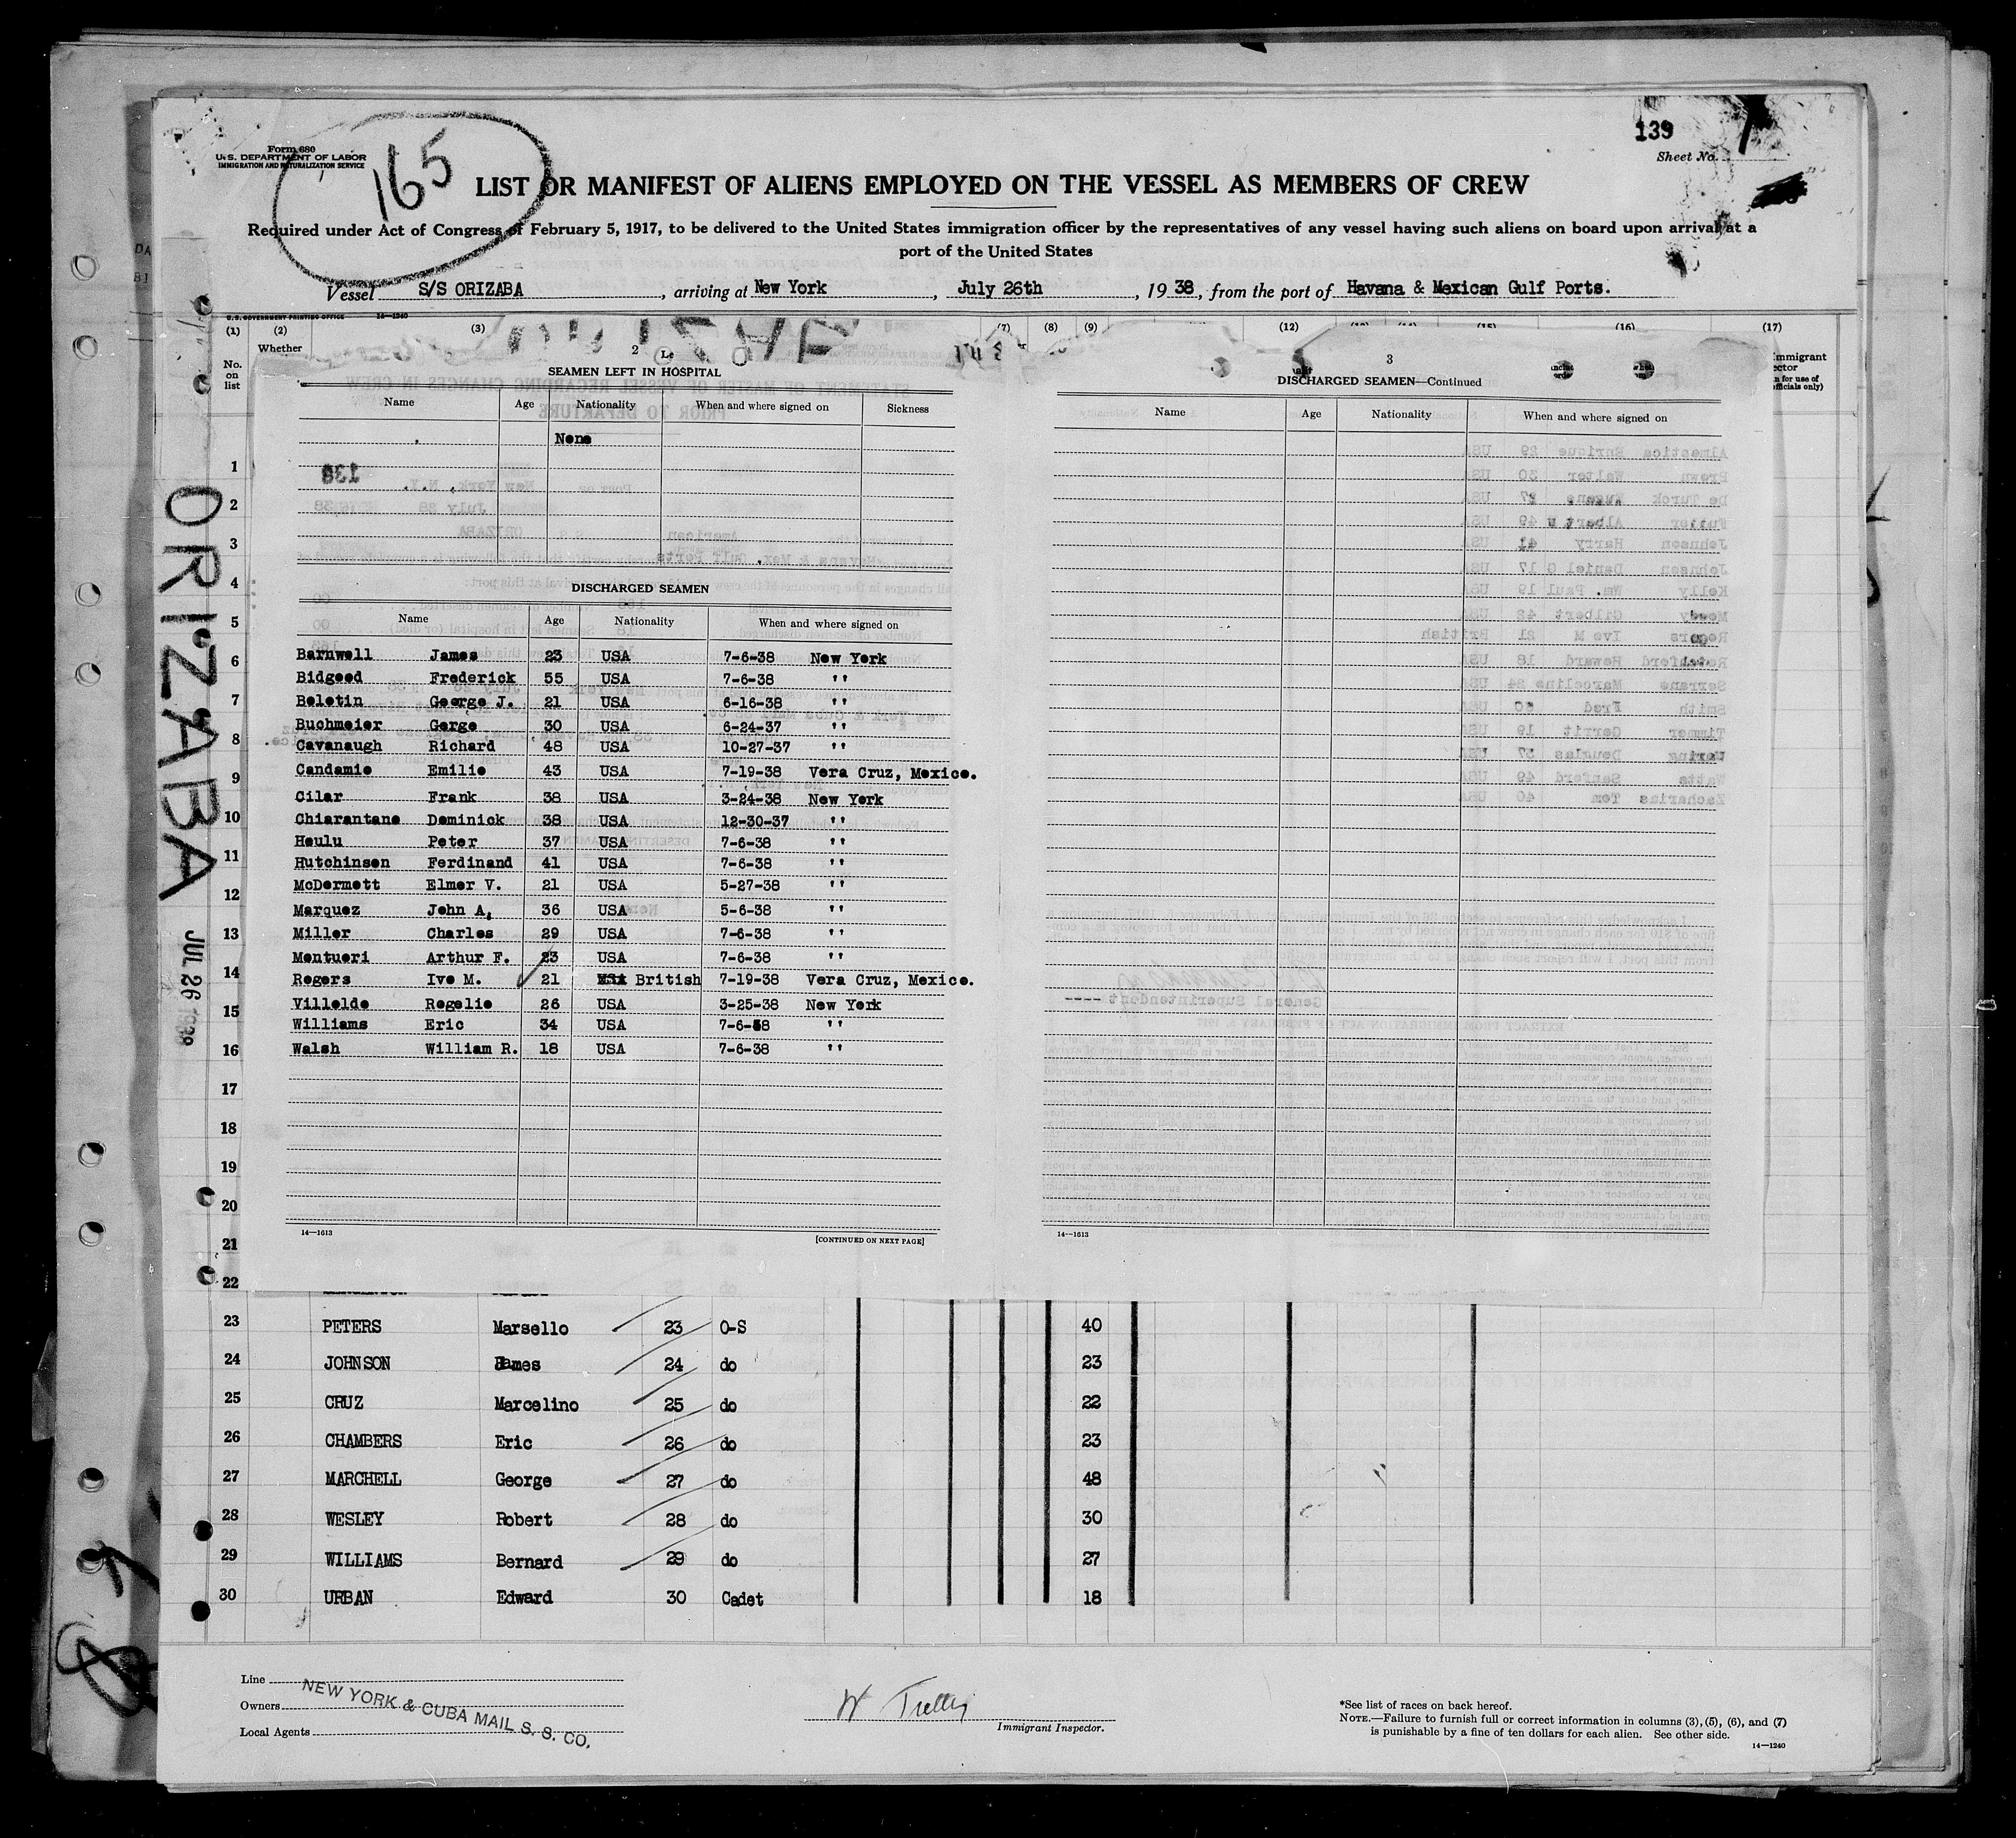 139
Sheet No.
Form 680
U. S. DEPARTMENT OF LABOR
IMMIGRATION AND NATURALIZATION SERVICE
165
LIST OR MANIFEST OF ALIENS EMPLOYED ON THE VESSEL AS MEMBERS OF CREW
Required under Act of Congress of February 5, 1917, to be delivered to the United States immigration officer by the representatives of any vessel having such aliens on board upon arrival at a
port of the United States
Vessel S/S ORIZABA, arriving at New York, July 26th, 19 38, from the port of Havana & Mexican Gulf Ports.
U. S. GOVERNMENT PRINTING OFFICE 14—1240
(1) (2) (3) (7) (8) (9) (12) (16) (17)
Whether
No. on list
ORIZABA
JUL 26 1938
2
SEAMEN LEFT IN HOSPITAL
Name Age Nationality When and where signed on Sickness
None
DISCHARGED SEAMEN
Name Age Nationality When and where signed on
Barnwell James 23 USA 7-6-38 New York
Bidgood Frederick 55 USA 7-6-38 ''
Boletin George J. 21 USA 6-16-38 ''
Buchmeier Gerge 30 USA 6-24-37 ''
Cavanaugh Richard 48 USA 10-27-37 ''
Candamio Emilio 43 USA 7-19-38 Vera Cruz, Mexico.
Cilar Frank 38 USA 3-24-38 New York
Chiarantano Dominick 38 USA 12-30-37 ''
Houlu Peter 37 USA 7-6-38 ''
Hutchinson Ferdinand 41 USA 7-6-38 ''
McDermott Elmer V. 21 USA 5-27-38 ''
Marquez John A, 36 USA 5-6-38 ''
Miller Charles 29 USA 7-6-38 ''
Montuori Arthur F. 23 USA 7-6-38 ''
Rogers Ivo M. 21 British 7-19-38 Vera Cruz, Mexico.
Villolde Rogelio 26 USA 3-25-38 New York
Williams Eric 34 USA 7-6-38 ''
Walsh William R. 18 USA 7-6-38 ''
14—1613 [CONTINUED ON NEXT PAGE]
3
DISCHARGED SEAMEN—Continued
Name Age Nationality When and where signed on
14—1613
1
2
3
4
5
6
7
8
9
10
11
12
13
14
15
16
17
18
19
20
21
22
23 PETERS Marsello 23 O-S 40
24 JOHNSON James 24 do 23
25 CRUZ Marcelino 25 do 22
26 CHAMBERS Eric 26 do 23
27 MARCHELL George 27 do 48
28 WESLEY Robert 28 do 30
29 WILLIAMS Bernard 29 do 27
30 URBAN Edward 30 Cadet 18
Line
Owners
Local Agents
NEW YORK & CUBA MAIL S. S. CO.
Immigrant Inspector.
*See list of races on back hereof.
NOTE.—Failure to furnish full or correct information in columns (3), (5), (6), and (7)
is punishable by a fine of ten dollars for each alien. See other side.
14—1240